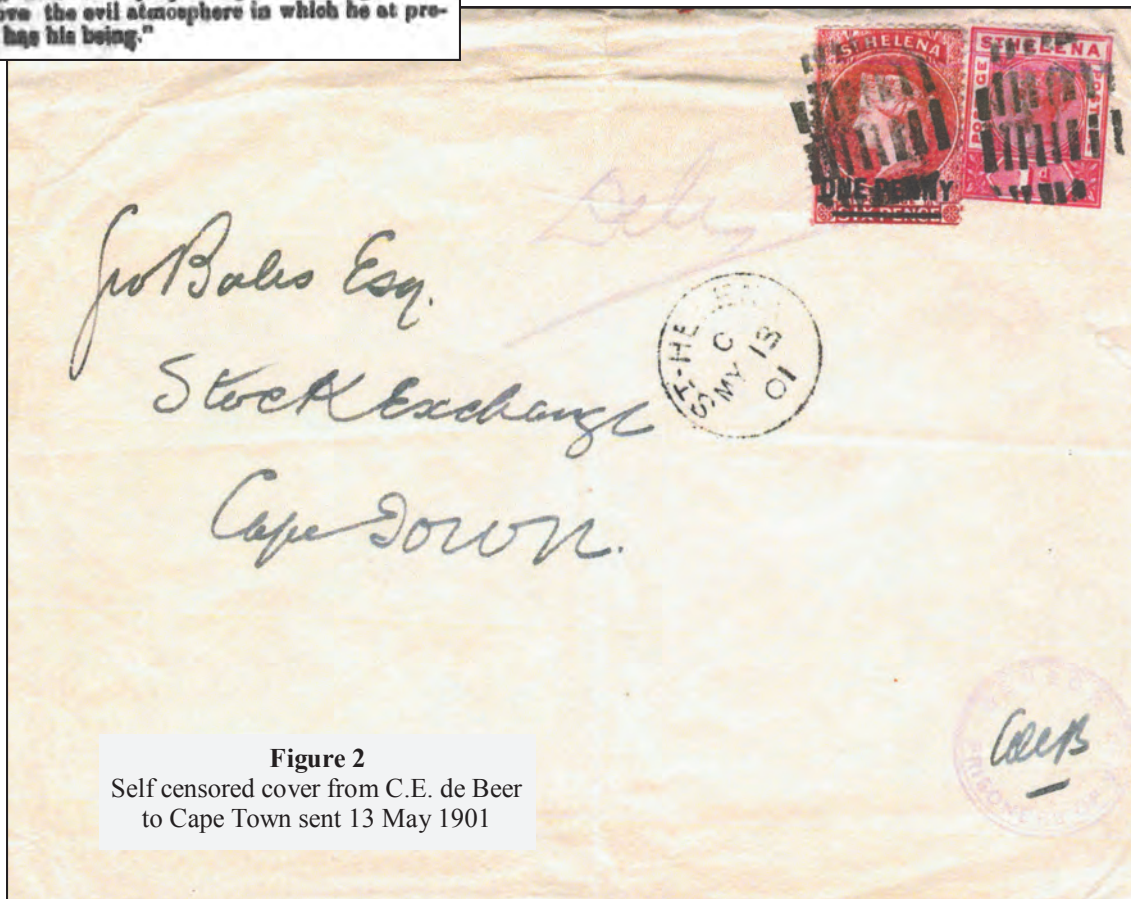 ove the evil atmosphere in which he at pre-
has his being."
ST HELENA
ONE PENNY
SIXPENCE
ST HELENA
POSTAGE
POSTAGE
1d
Esq.
Stock Exchange
Cape Town.
ST. HELENA
C
MY 13
01
PRISONERS OF
CdeB
Figure 2
Self censored cover from C.E. de Beer
to Cape Town sent 13 May 1901